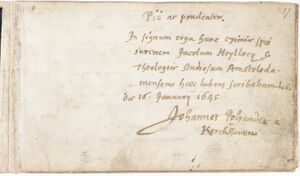 Piè ac prudenter.
In signum erga hunc eximiæ spei
iuvenem Jacobum Heyblocq S.
Theologiæ Studiosum Amsteloda-
mensem hæc lubens scribebam
die 16. January 1645
Johannes Polyander à
Kerckhoven